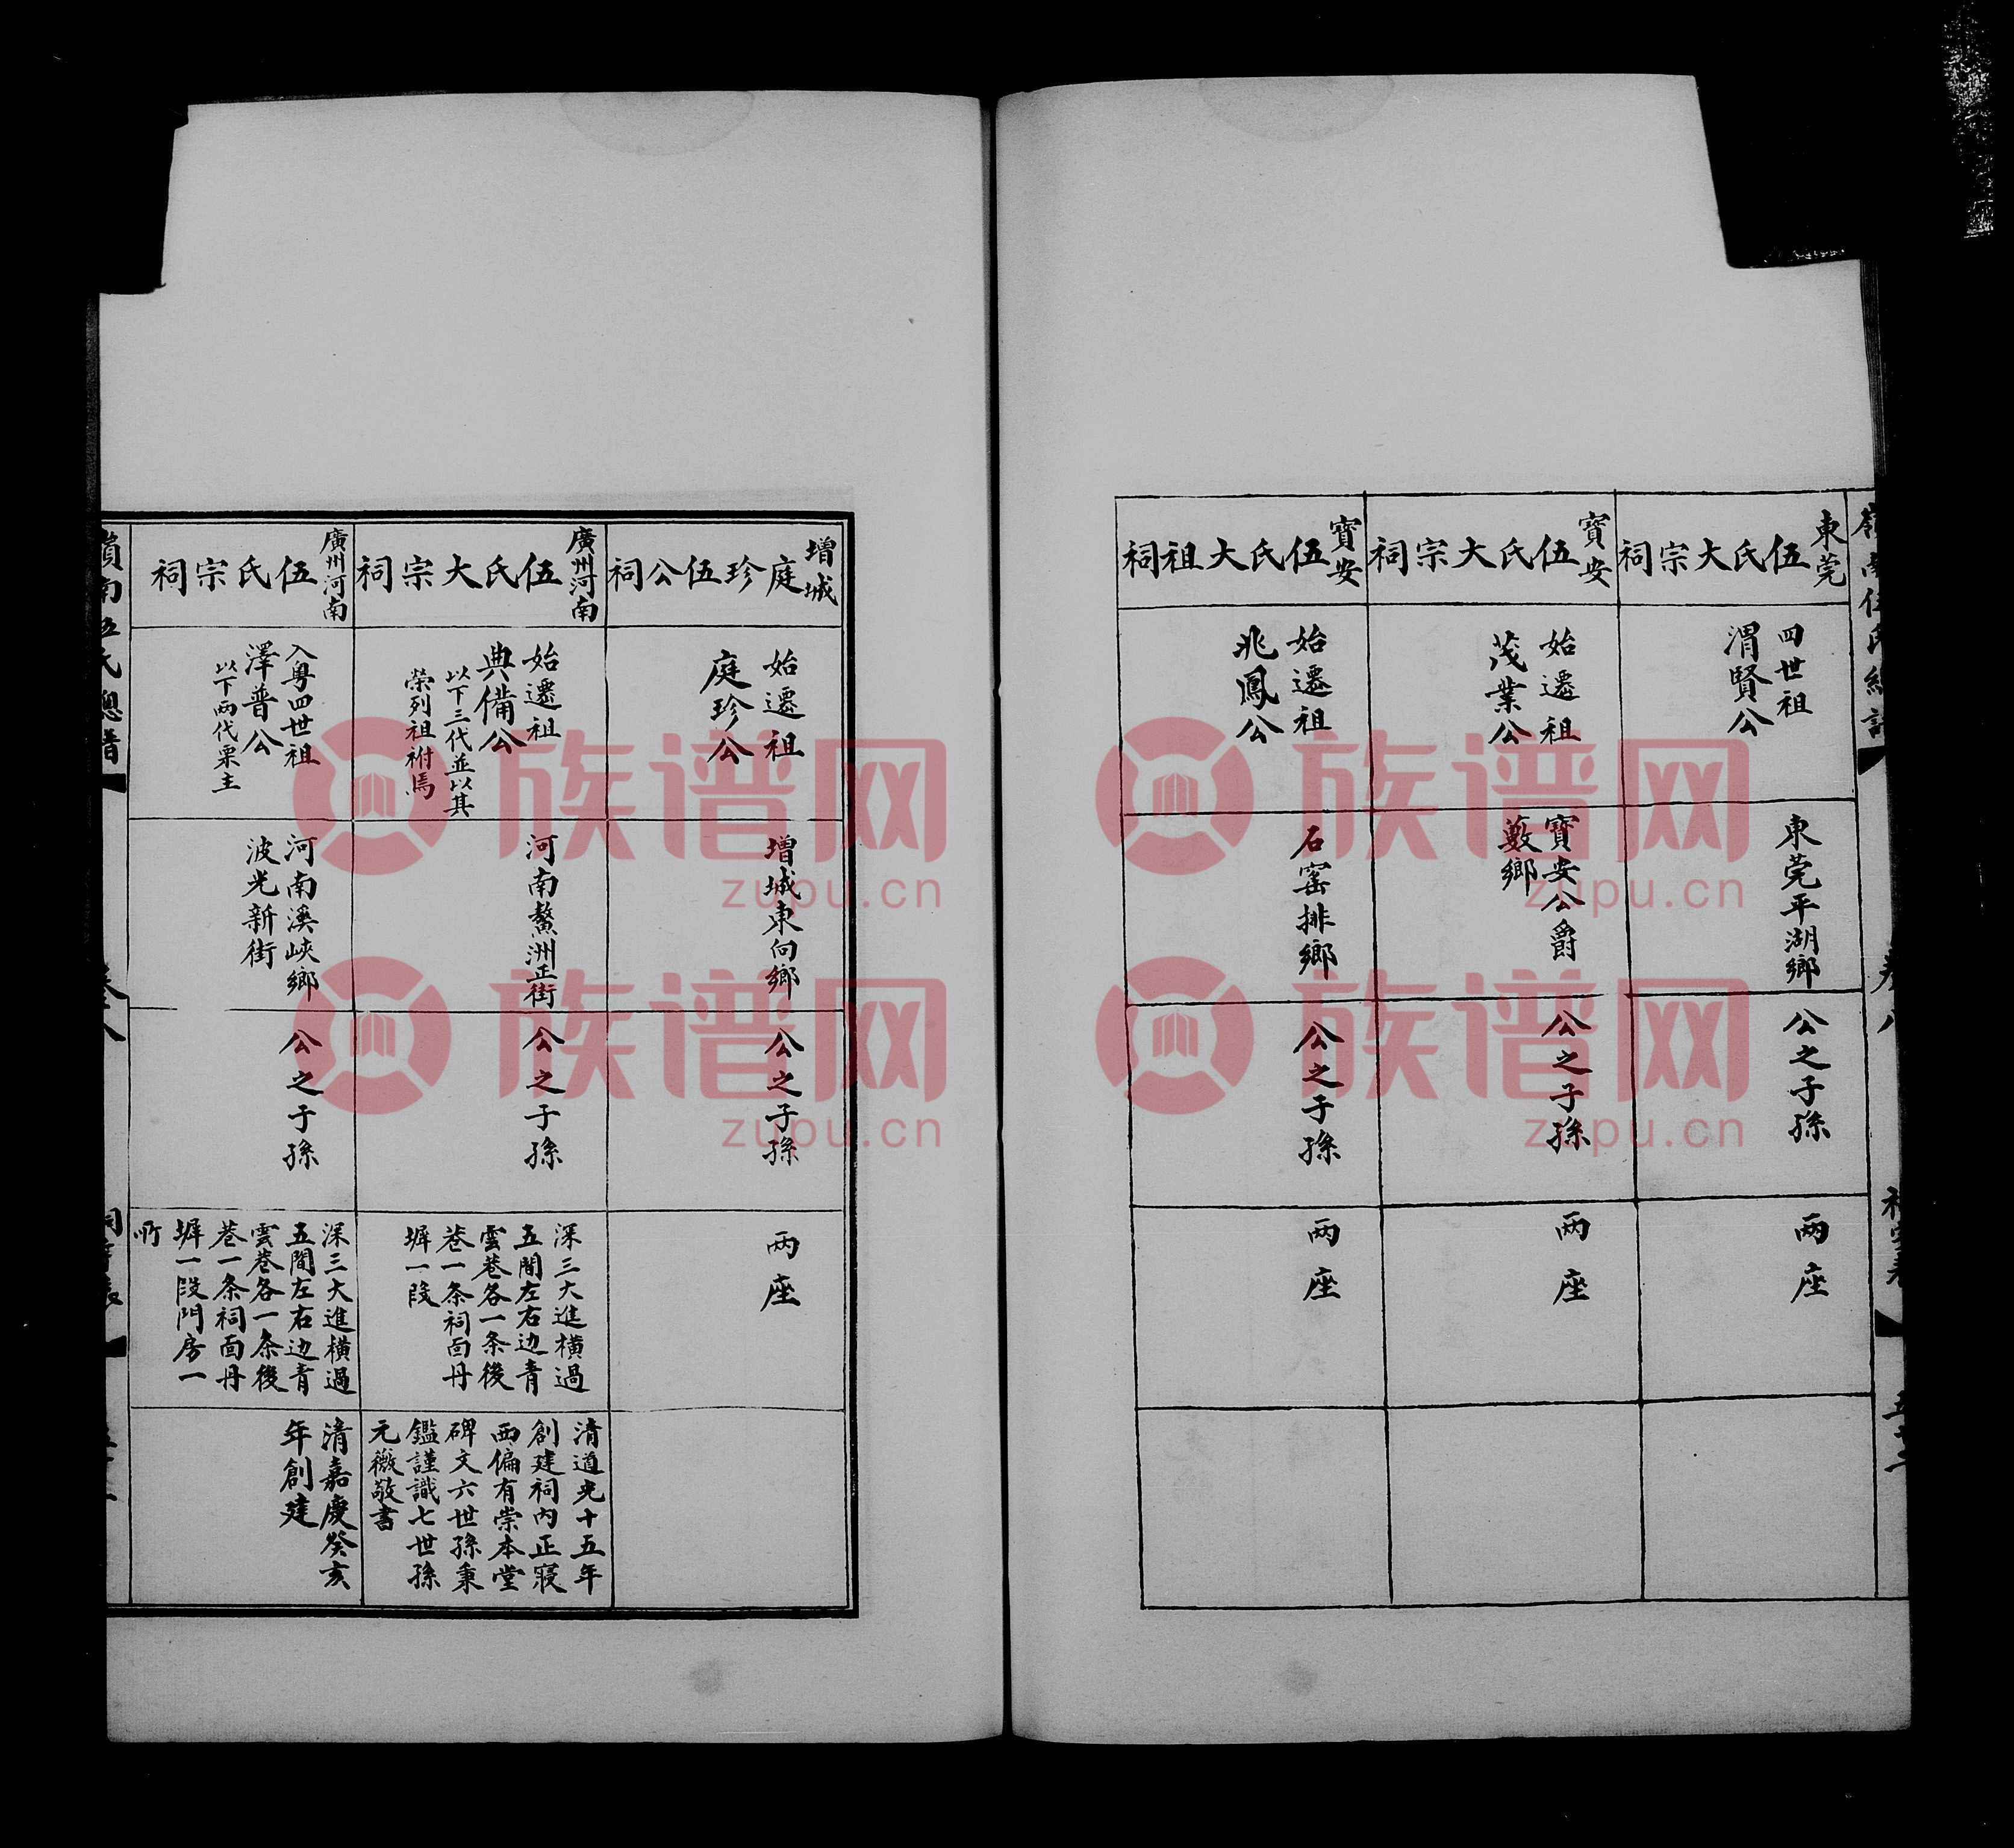 嶺南伍氏總譜
卷八
祠宇表
東莞
伍氏大宗祠
四世祖
渭賢公
東莞平湖鄉
公之子孫
兩座
寶安
伍氏大宗祠
始遷祖
茂業公
寶安公爵
藪鄉
公之子孫
兩座
寶安
伍氏大祖祠
始遷祖
兆鳳公
石窰排鄉
公之子孫
兩座
增城
庭珍伍公祠
始遷祖
庭珍公
增城東向鄉
公之子孫
兩座
廣州河南
伍氏大宗祠
始遷祖
典備公
以下三代並以其
榮列祖祔焉
河南鰲洲正街
公之子孫
深三大進橫過
五間左右边青
雲巷各一条後
巷一条祠面丹
墀一段
清道光十五年
創建祠內正寢
西偏有崇本堂
碑文六世孫秉
鑑謹識七世孫
元薇敬書
廣州河南
伍氏宗祠
入粵四世祖
澤普公
以下兩代栗主
河南溪峽鄉
波光新街
公之子孫
深三大進橫過
五間左右边青
雲巷各一条後
巷一条祠面丹
墀一段門房一
所
清嘉慶癸亥
年創建
嶺南伍氏總譜
卷八
祠宇表
族谱网
zupu.cn
族谱网
zupu.cn
族谱网
zupu.cn
族谱网
zupu.cn